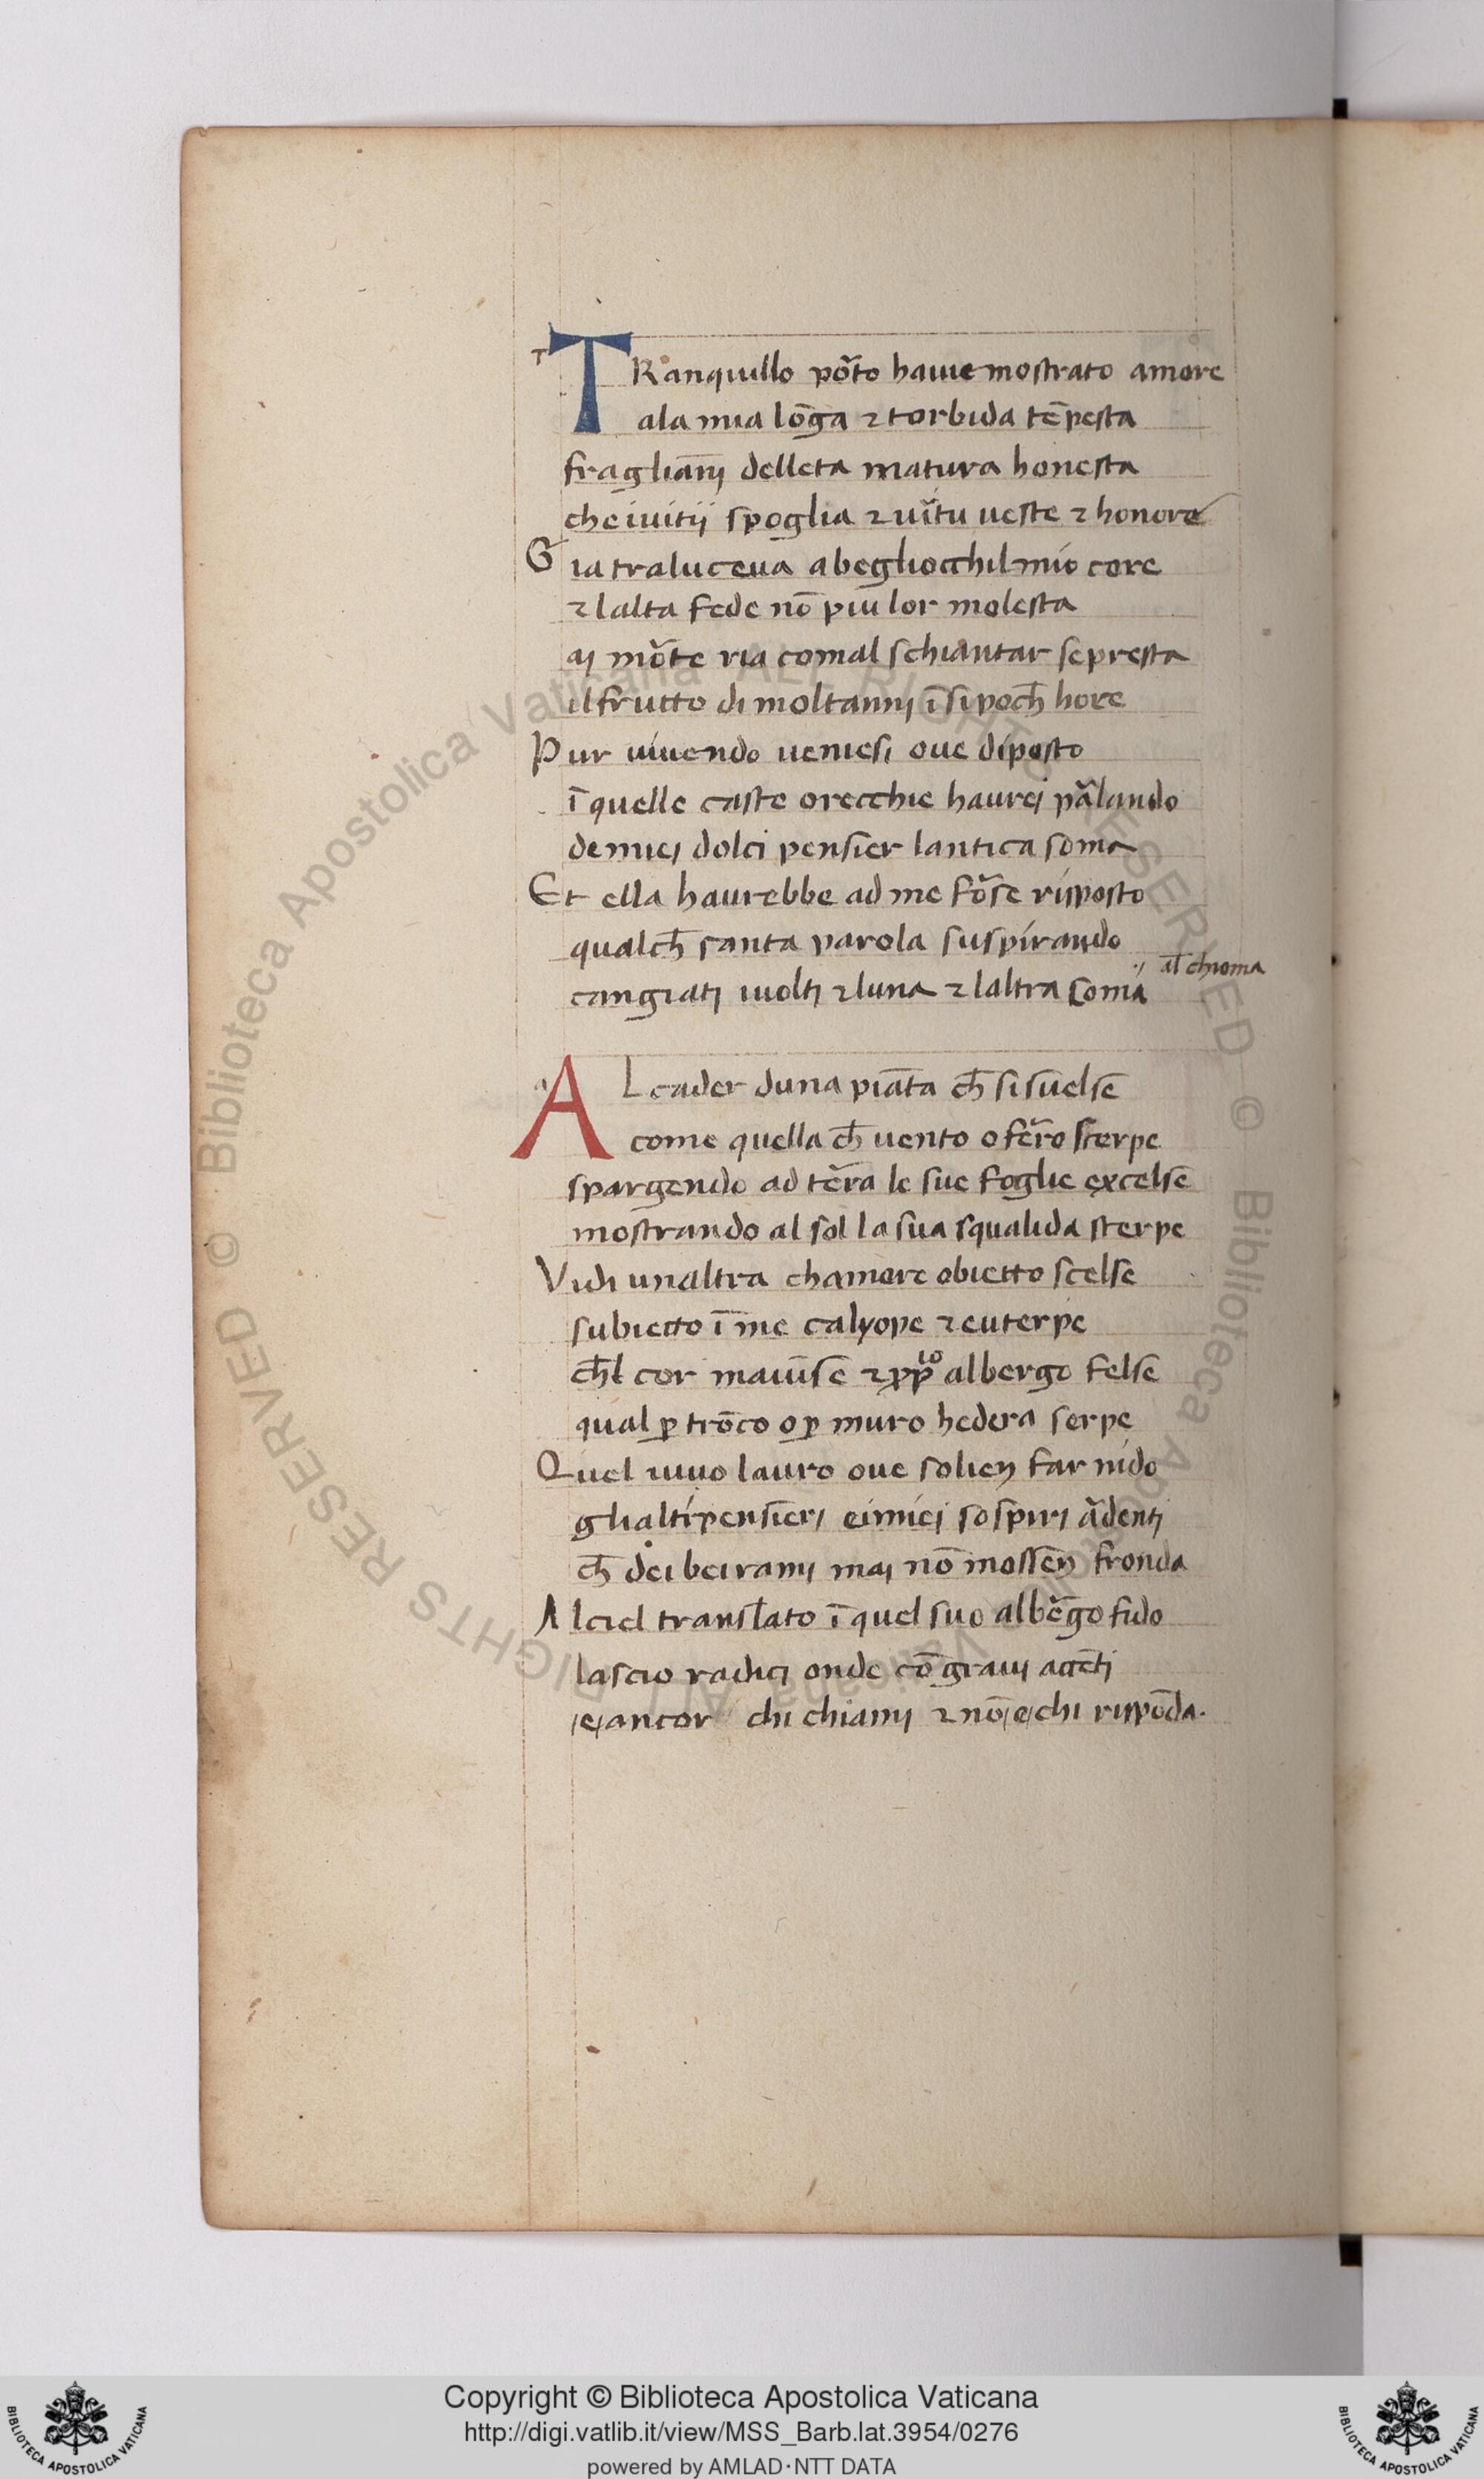 TRanquillo por̃to hauie mostrato amore
ala mia lõga ⁊ torbida tẽpesta
fragliañj delleta matura honesta
che iuitij spoglia ⁊ uir̃tu ueste ⁊ honore
Gia traluceua abegliocchil mio core
⁊ lalta fede nõ piu lor molesta
aj mor̃te ria comal schiantar sepresta
il frutto di moltannj ĩ si poch̄ hore
Pur uiuendo ueniesi oue diposto
ĩ quelle caste orecchie haurej par̃lando
de miej dolci pensier lantica soma
Et ella haurebbe ad me for̃se risposto
qualch̄ santa parola suspirando
cangiatj iuoltj ⁊ luna ⁊ laltra coma
al̄ chioma
AL cader duna piãta ch̄ si suelse
come quella ch̄ uento o fer̃ro sterpe
spargendo ad ter̃ra le sue foglie excelse
mostrando al sol la sua squalida sterpe
Vidi unaltra chamore obietto scelse
subietto ĩ me calyope ⁊ euterpe
ch̄l cor mauinse ⁊ ꝓpͥo albergo felse
qual ꝑ trõco o ꝑ muro hedera serpe
Quel uiuo lauro oue solien far nido
glialti pensierj eimiej sospirj ar̃dentj
ch̄ dei bei ramj maj nõ mossen fronda
Al ciel translato ĩ quel suo alber̃go fido
lascio radicj onde cõ grauj accẽtj
/e/ ancor chi chiamj ⁊ nõ /e/ chi rispõda.
Copyright © Biblioteca Apostolica Vaticana
http://digi.vatlib.it/view/MSS_Barb.lat.3954/0276
powered by AMLAD·NTT DATA